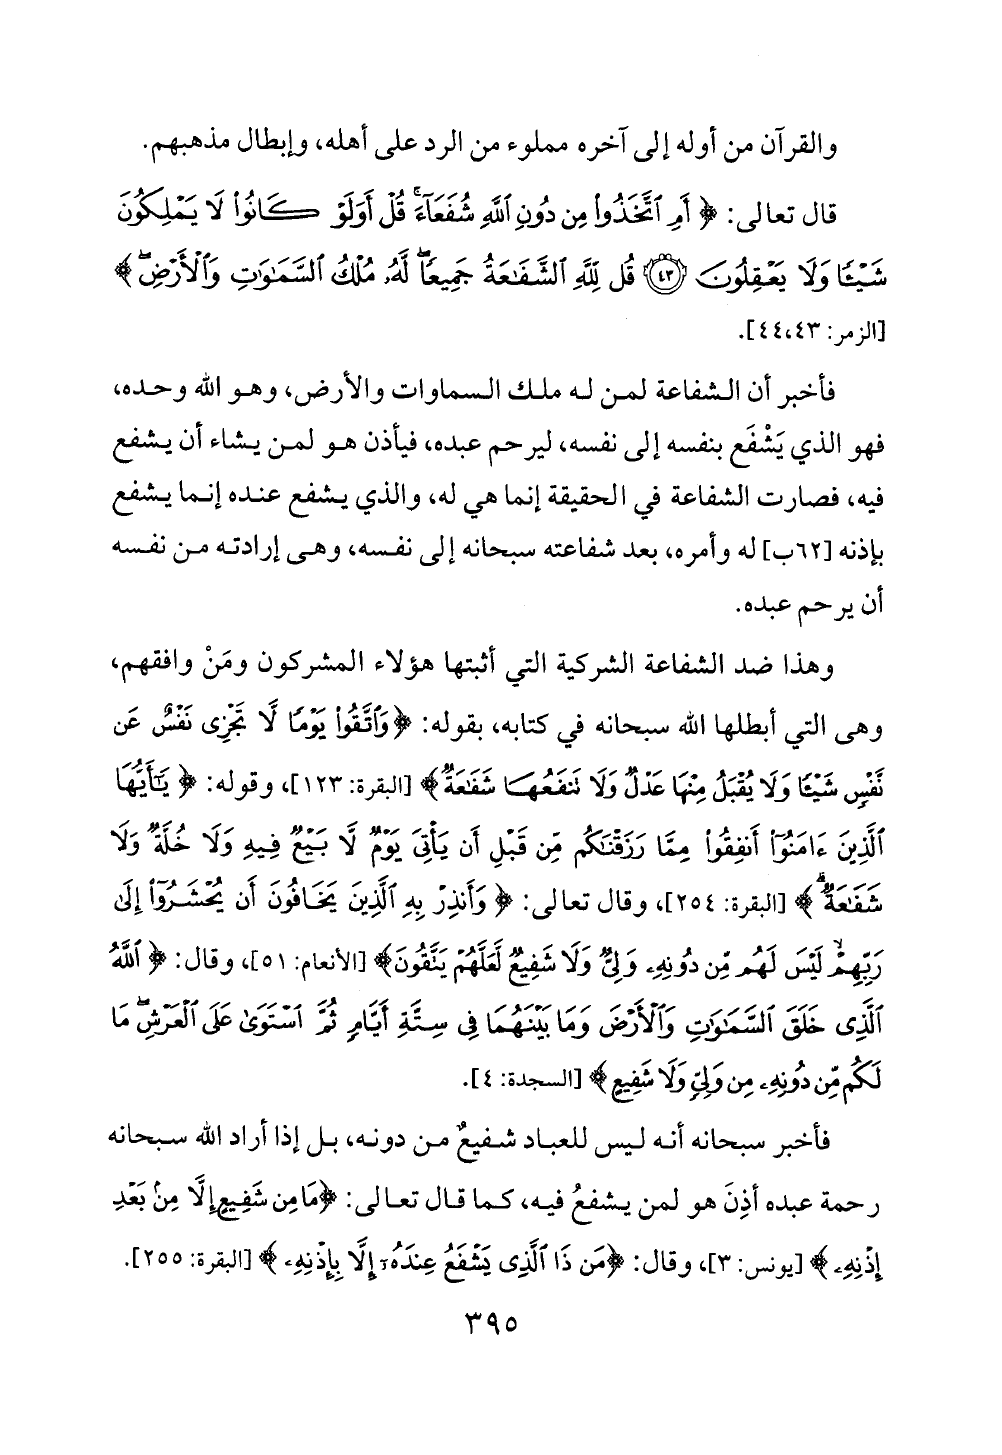 والقرآن من أوله إلى آخره مملوء من الرد على أهله، وإبطال مذهبهم.
قال تعالى: ﴿ أَمِ ٱتَّخَذُوا۟ مِن دُونِ ٱللَّهِ شُفَعَآءَ ۚ قُلْ أَوَلَوْ كَانُوا۟ لَا يَمْلِكُونَ
شَيْـًٔا وَلَا يَعْقِلُونَ ﴿٤٣﴾ قُل لِّلَّهِ ٱلشَّفَـٰعَةُ جَمِيعًا ۖ لَّهُۥ مُلْكُ ٱلسَّمَـٰوَٰتِ وَٱلْأَرْضِ ۖ ﴾
[الزمر: ٤٤،٤٣].
فأخبر أن الشفاعة لمن له ملك السماوات والأرض، وهو الله وحده،
فهو الذي يَشْفَع بنفسه إلى نفسه، ليرحم عبده، فيأذن هو لمن يشاء أن يشفع
فيه، فصارت الشفاعة في الحقيقة إنما هي له، والذي يشفع عنده إنما يشفع
بإذنه [٦٢ب] له وأمره، بعد شفاعته سبحانه إلى نفسه، وهى إرادته من نفسه
أن يرحم عبده.
وهذا ضد الشفاعة الشركية التي أثبتها هؤلاء المشركون ومَنْ وافقهم،
وهى التي أبطلها الله سبحانه في كتابه، بقوله: ﴿ وَٱتَّقُوا۟ يَوْمًا لَّا تَجْزِى نَفْسٌ عَن
نَّفْسٍ شَيْـًٔا وَلَا يُقْبَلُ مِنْهَا عَدْلٌ وَلَا تَنفَعُهَا شَفَـٰعَةٌ ﴾ [البقرة: ١٢٣]، وقوله: ﴿ يَـٰٓأَيُّهَا
ٱلَّذِينَ ءَامَنُوٓا۟ أَنفِقُوا۟ مِمَّا رَزَقْنَـٰكُم مِّن قَبْلِ أَن يَأْتِىَ يَوْمٌ لَّا بَيْعٌ فِيهِ وَلَا خُلَّةٌ وَلَا
شَفَـٰعَةٌ ۗ ﴾ [البقرة: ٢٥٤]، وقال تعالى: ﴿ وَأَنذِرْ بِهِ ٱلَّذِينَ يَخَافُونَ أَن يُحْشَرُوٓا۟ إِلَىٰ
رَبِّهِمْ ۙ لَيْسَ لَهُم مِّن دُونِهِۦ وَلِىٌّ وَلَا شَفِيعٌ لَّعَلَّهُمْ يَتَّقُونَ ﴾ [الأنعام: ٥١]، وقال: ﴿ ٱللَّهُ
ٱلَّذِى خَلَقَ ٱلسَّمَـٰوَٰتِ وَٱلْأَرْضَ وَمَا بَيْنَهُمَا فِى سِتَّةِ أَيَّامٍ ثُمَّ ٱسْتَوَىٰ عَلَى ٱلْعَرْشِ ۖ مَا
لَكُم مِّن دُونِهِۦ مِن وَلِىٍّ وَلَا شَفِيعٍ ﴾ [السجدة: ٤].
فأخبر سبحانه أنه ليس للعباد شفيعٌ من دونه، بل إذا أراد الله سبحانه
رحمة عبده أذِنَ هو لمن يشفعُ فيه، كما قال تعالى: ﴿ مَا مِن شَفِيعٍ إِلَّا مِنۢ بَعْدِ
إِذْنِهِۦ ﴾ [يونس: ٣]، وقال: ﴿ مَن ذَا ٱلَّذِى يَشْفَعُ عِندَهُۥٓ إِلَّا بِإِذْنِهِۦ ﴾ [البقرة: ٢٥٥].
٣٩٥